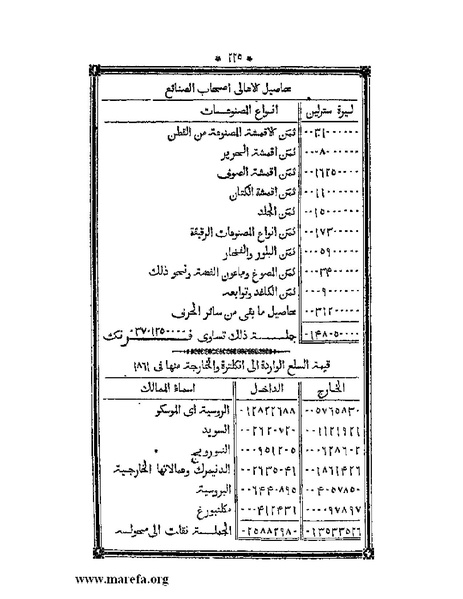 * ٢٢٥ *
محاصيل الاهالى اصحاب الصنائع
ليرة سترلين انواع المصنوعات
٠٠٣١٠٠٠٠٠٠ ثمن الاقمشة المصنوعة من القطن
٠٠٠٨٠٠٠٠٠٠ ثمن اقمشة الحرير
٠٠١٦٢٥٠٠٠٠ ثمن اقمشة الصوف
٠٠١١٠٠٠٠٠٠ ثمن اقمشة الكتان
٠٠١٥٠٠٠٠٠٠ ثمن الجلد
٠٠١٧٣٠٠٠٠٠ ثمن انواع المصنوعات الرقيقة
٠٠٠٥٩٠٠٠٠٠ ثمن البلور والفخار
٠٠٠٣٤٠٠٠٠٠ ثمن المصوغ وماعون الفضة ونحو ذلك
٠٠٠٩٠٠٠٠٠٠ ثمن الكاغد وتوابعه
٠٠٣١٢٠٠٠٠٠ محاصيل ما بقى من سائر الحرف
٠١٤٨٠٥٠٠٠٠ جملة ذلك تساوى فرنك ٣٧٠١٢٥٠٠٠٠
قيمة السلع الواردة الى انكلترة والخارجة منها فى ١٨٦١
الخارج الداخل اسماء الممالك
٠٠٥٧٦٥٨٣٠ ٠١٢٨٢٢٦٨٨ الروسية اى الموسكو
٠٠١١٢١٩٢١ ٠٠٢٦٢٠٧٢٠ السويد
٠٠٠٦٢٨٦٠٢ ٠٠٠٩٥١٢٠٥ النورويج
٠٠١٨٦١٤٢٦ ٠٠٢٦٣٥٠٤١ الدنيمرك وعمالاتها الخارجية
٠٠٤٠٥٧٨٥٠ ٠٠٦٤٤٠٨٩٥ البروسية
٠٠٠٠٩٧٨٩٧ ٠٠٠٤١٢٤٣١ مكلنبورغ
٠١٣٥٣٣٥٢٦ ٠٢٥٨٨٢٩٨٠ الجملة نقلت الى محوله
www.marefa.org